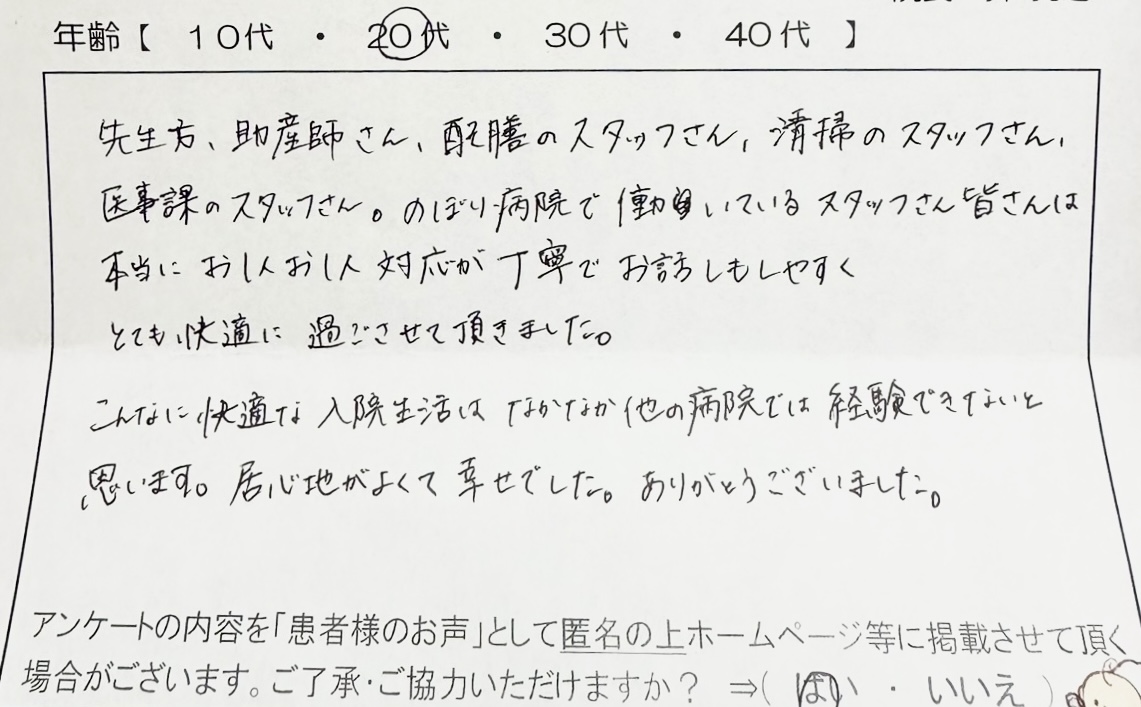 年齢【 10代 ・ 20代 ・ 30代 ・ 40代 】
先生方、助産師さん、配膳のスタッフさん、清掃のスタッフさん、
医事課のスタッフさん。のぼり病院で働いているスタッフさん皆さんは
本当にお1人お1人対応が丁寧でお話しもしやすく
とても快適に過ごさせて頂きました。
こんなに快適な入院生活はなかなか他の病院では経験できないと
思います。居心地がよくて幸せでした。ありがとうございました。
アンケートの内容を「患者様のお声」として匿名の上ホームページ等に掲載させて頂く
場合がございます。ご了承・ご協力いただけますか？ ⇒( はい ・ いいえ )